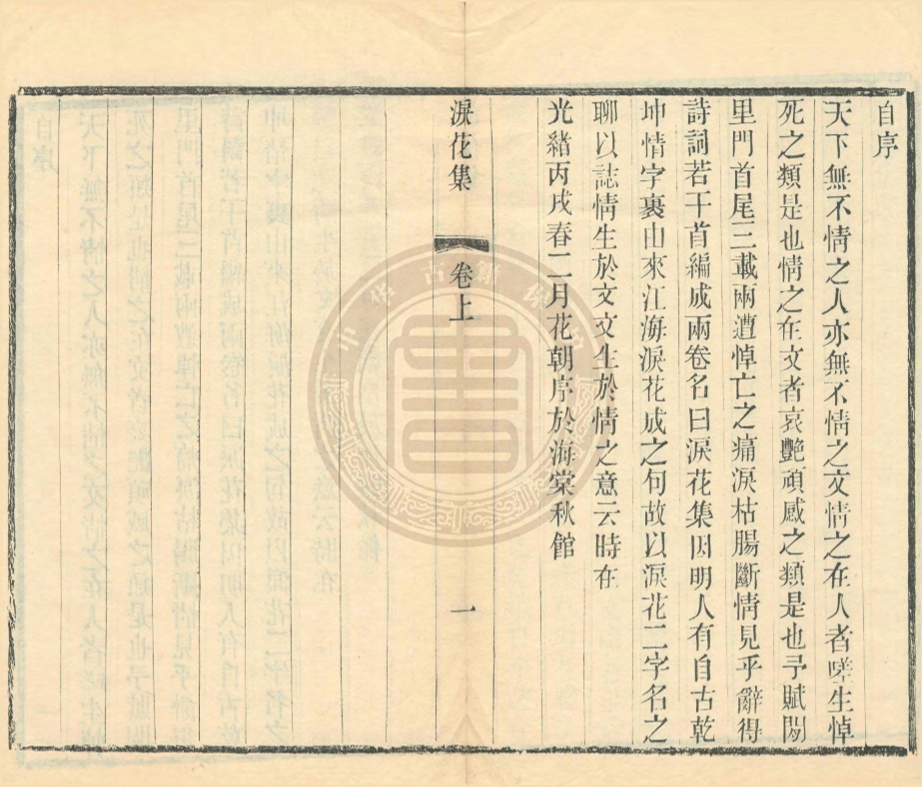 自序
天下無不情之人亦無不情之文情之在人者嗟生悼
死之類是也情之在文者哀艷頑感之類是也予賦閒
里門首尾三載兩遭悼亡之痛淚枯腸斷情見乎辭得
詩詞若干首編成兩卷名曰淚花集因明人有自古乾
坤情字裏由來江海淚花成之句故以淚花二字名之
聊以誌情生於文文生於情之意云時在
光緒丙戌春二月花朝序於海棠秋館
淚花集 卷上 一